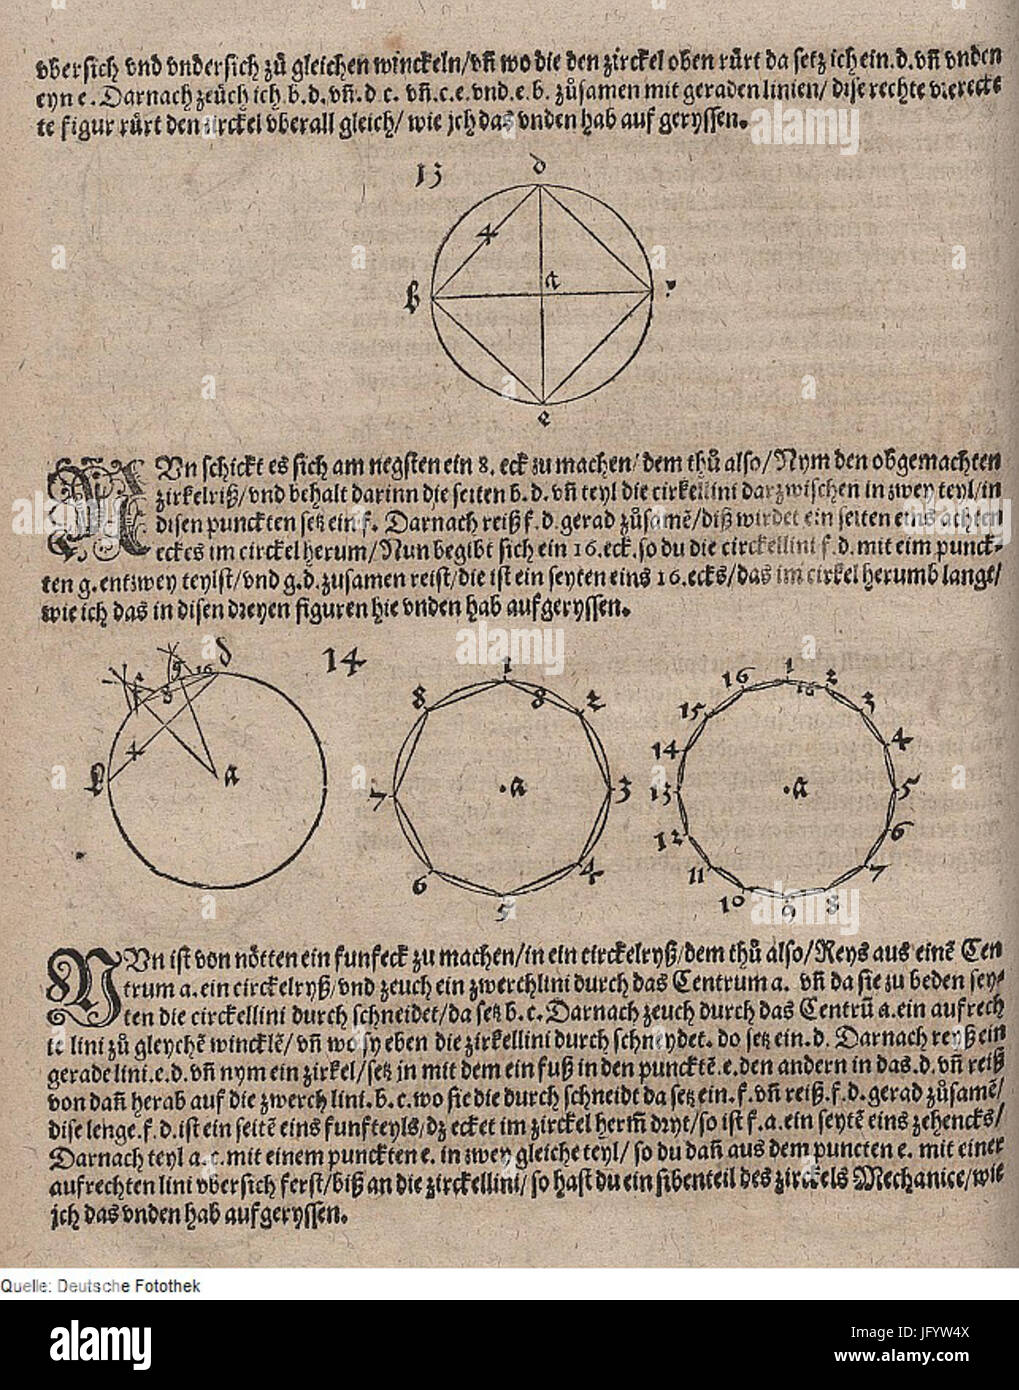 vbersich vnd vndersich zů gleichen winckeln/vñ wo die den zirckel oben rürt da setz ich ein.d.vñ vnden
eyn e. Darnach zeüch ich b.d.vñ.d c. vñ.c.e.vnd.e.b. zůsamen mit geraden linien/ dise rechte viereckete
te figur rürt den circkel vberall gleich/ wie jch das vnden hab auf geryssen.
13
d
4
a
b
e
NVn schickt es sich am negsten ein 8. eck zu machen/ dem thů also/Nym den obgemachten
zirkelriß/vnd behalt darinn die seiten b.d. vñ teyl die cirkellini darzwischen in zwey teyl/in
disen punckten setz ein f. Darnach reiß f.d.gerad zůsamē/diß wirdet ein seiten eins achten
eckes im circkel herum/Nun begibt sich ein 16.eck.so du die circkellini f.d.mit eim punck-
ten g.entzwey teylst/vnd g.d.zusamen reist/die ist ein seyten eins 16.ecks/das im cirkel herumb langt/
wie ich das in disen dreyen figuren hie vnden hab aufgeryssen.
14
f 8 g 16 d
4
b
a
1 8 2 3 4 5 6 7 8
a
1 16 2 3 4 5 6 7 8 9 10 11 12 13 14 15 16
a
NVn ist von nötten ein funfeck zu machen/in ein circkelryß/dem thů also/Reys aus einē Cen
trum a.ein circkelryß/vnd zeuch ein zwerchlini durch das Centrum a. vñ da sie zu beden sey-
ten die circkellini durch schneidet/da setz b.c. Darnach zeuch durch das Centrū a.ein aufrech
te lini zů gleychē wincklē/ vñ wo sy eben die zirkellini durch schneydet. do setz ein.d. Darnach reyß ein
gerade lini.e.d.vñ nym ein zirkel/setz jn mit dem ein fuß in den punctē.e.den andern in das.d.vñ reiß
von dañ herab auf die zwerch lini.b.c.wo sie die durch schneidt da setz ein.f.vñ reiß.f.d.gerad zůsamē/
dise lenge.f.d.ist ein seitē eins funfteyls/dz ecket im zirckel herm̄ dryt/so ist f.a.ein seytē eins zehencks/
Darnach teyl a.c.mit einem punckten e. in zwey gleiche teyl/ so du dañ aus dem puncten e. mit einer
aufrechten lini vbersich ferst/biß an die zirckellini/ so hast du ein sibenteil des zirckels Mechanice/wie
jch das vnden hab aufgeryssen.
Quelle: Deutsche Fotothek
alamy
Image ID: JFYW4X
www.alamy.com